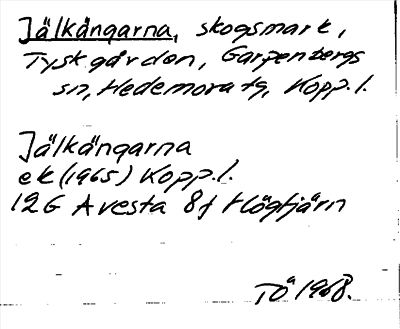 Jälkångarna, skogsmark,
Tyskgården, Garpenbergs
sn, Hedemora tg, Kopp.l.
Jälkängarna
ek (1965) Kopp.l.
12G Avesta 8f Högtjärn
TÖ 1968.